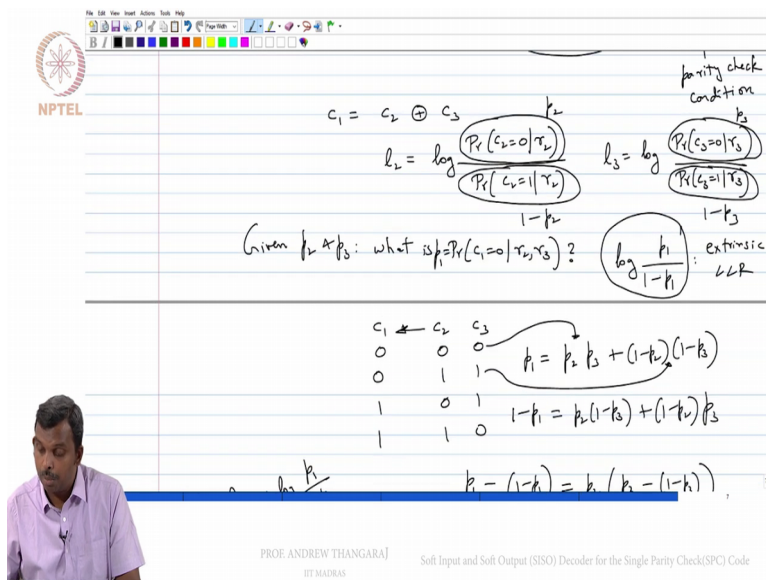 File Edit View Insert Actions Tools Help
Page Width
B I
NPTEL
parity check
condition
c₁ = c₂ ⊕ c₃
l₂ = log Pr(c₂=0|r₂) / Pr(c₂=1|r₂)
p₂
1-p₂
l₃ = log Pr(c₃=0|r₃) / Pr(c₃=1|r₃)
p₃
1-p₃
Given p₂ & p₃: what is p₁=Pr(c₁=0|r₂,r₃)?
log p₁ / 1-p₁ : extrinsic
LLR
c₁ ← c₂ c₃
0 0 0
0 1 1
1 0 1
1 1 0
p₁ = p₂ p₃ + (1-p₂)(1-p₃)
1-p₁ = p₂(1-p₃) + (1-p₂)p₃
log p₁
p₁ - (1-p₁) = p₂ (p₃ - (1-p₃))
PROF. ANDREW THANGARAJ
IIT MADRAS
Soft Input and Soft Output (SISO) Decoder for the Single Parity Check(SPC) Code